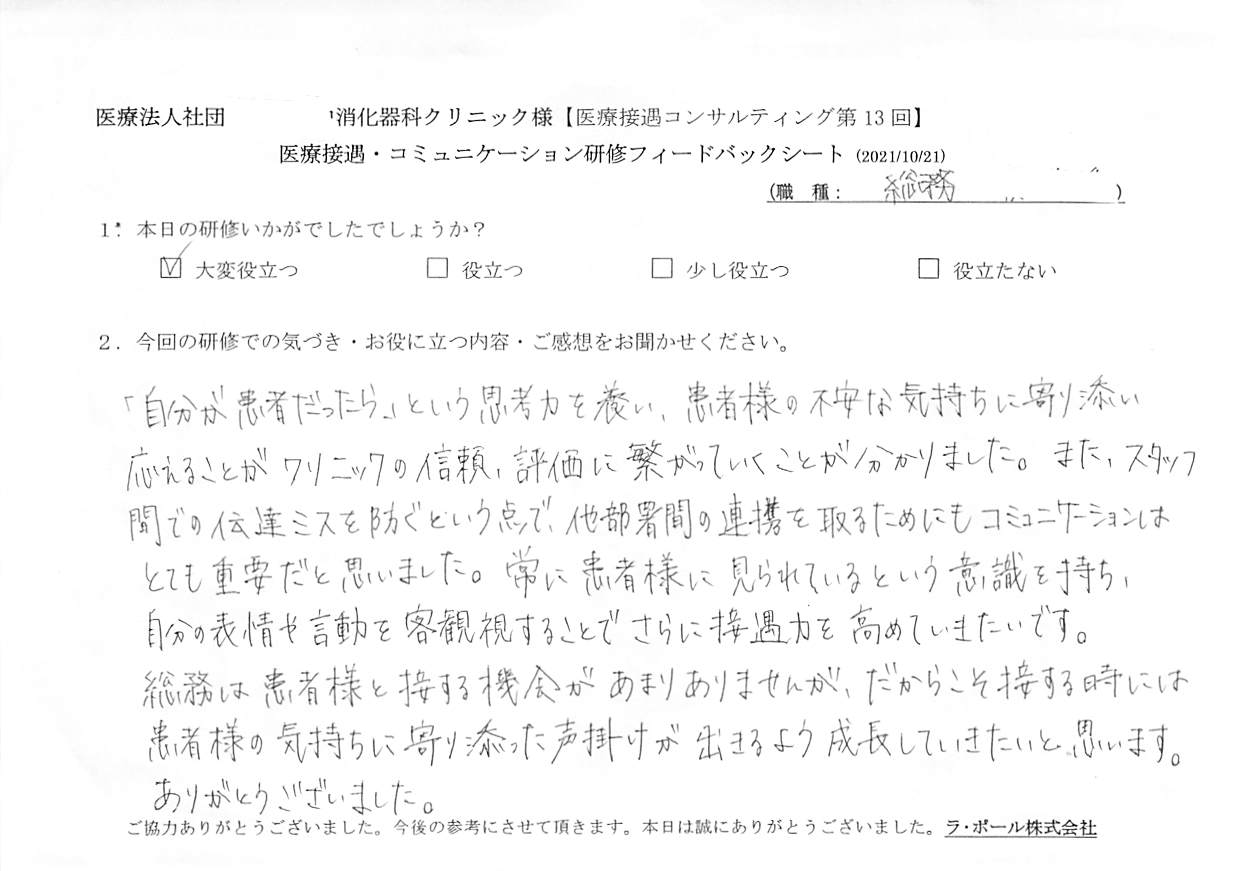 医療法人社団 消化器科クリニック様【医療接遇コンサルティング第13回】
医療接遇・コミュニケーション研修フィードバックシート (2021/10/21)
(職 種: 総務 )
1. 本日の研修いかがでしたでしょうか?
☑ 大変役立つ □ 役立つ □ 少し役立つ □ 役立たない
2. 今回の研修での気づき・お役に立つ内容・ご感想をお聞かせください。
「自分が患者だったら」という思考力を養い、患者様の不安な気持ちに寄り添い
応えることがクリニックの信頼、評価に繋がっていくことが分かりました。また、スタッフ
間での伝達ミスを防ぐという点で、他部署間の連携を取るためにもコミュニケーションは
とても重要だと思いました。常に患者様に見られているという意識を持ち、
自分の表情や言動を客観視することでさらに接遇力を高めていきたいです。
総務は患者様と接する機会があまりありませんが、だからこそ接する時には
患者様の気持ちに寄り添った声掛けが出きるよう成長していきたいと思います。
ありがとうございました。
ご協力ありがとうございました。今後の参考にさせて頂きます。本日は誠にありがとうございました。ラ・ポール株式会社